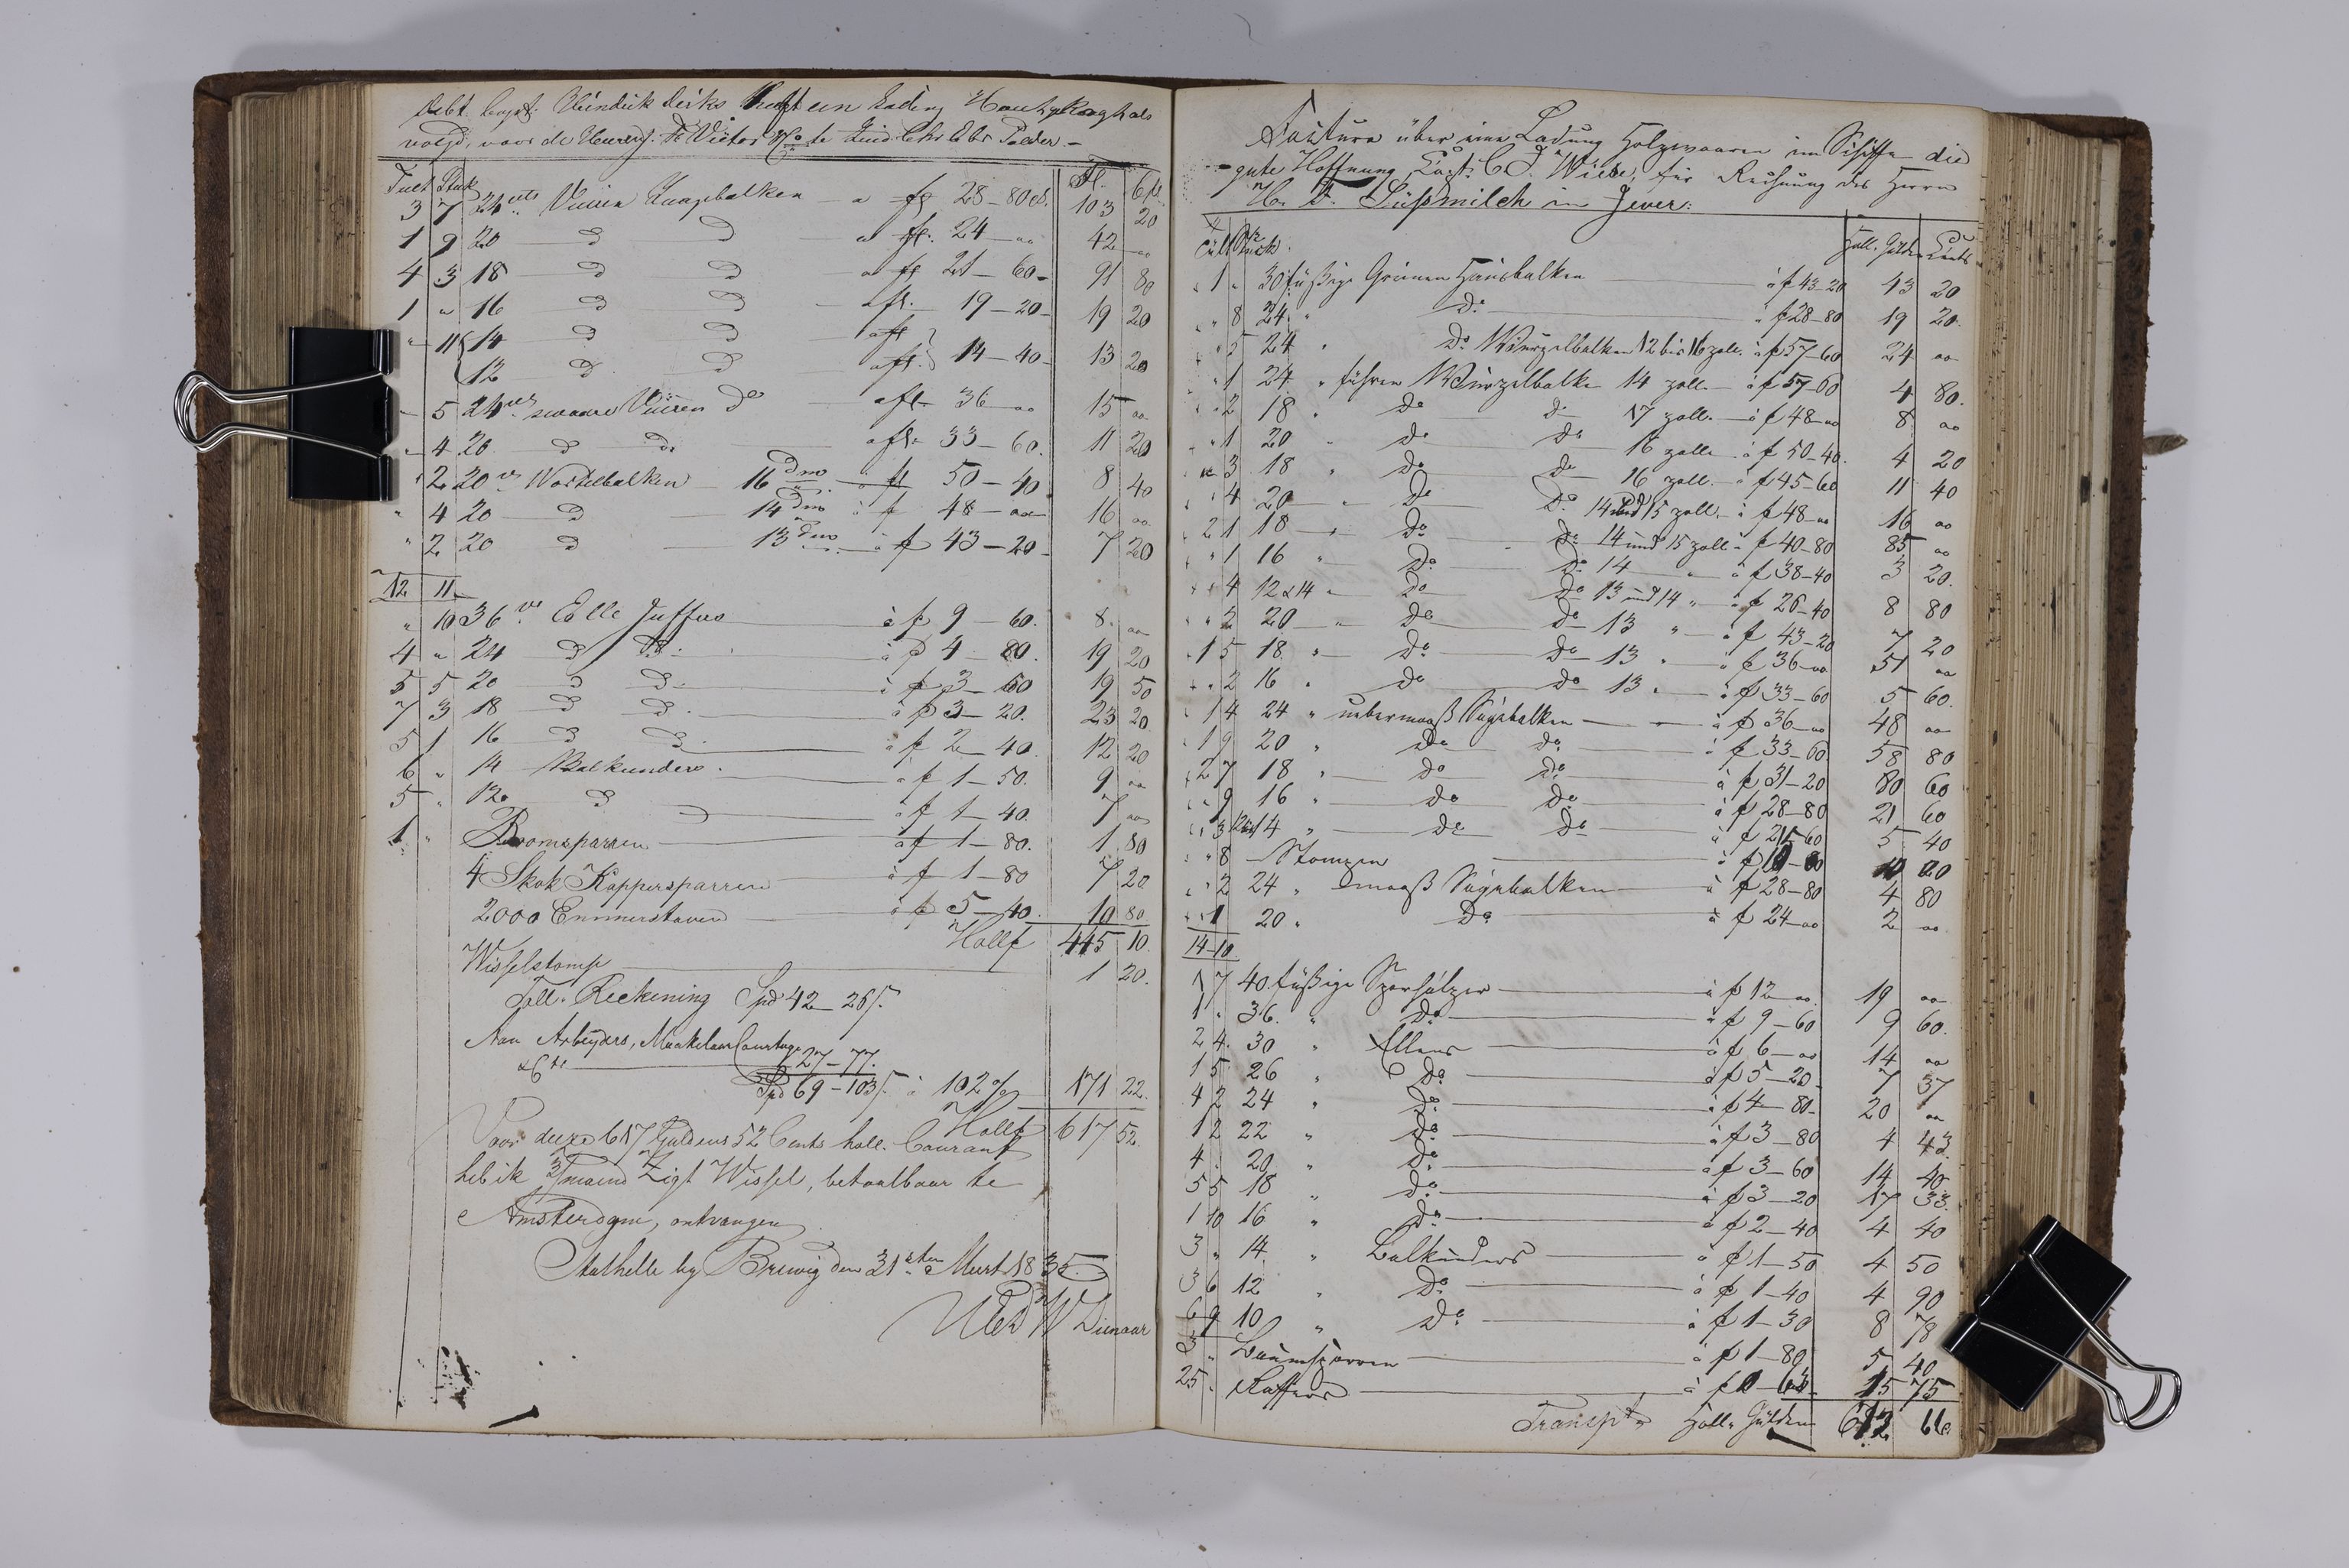 Hindirk Derks heeft een Lading Hout als
volgd, voor de te Polder.
Tult Stuk Fl. Cts
3 7 24 vts Vuren Zaagebalken a fl 28-80 cts. 103 20
1 9 20 d d a fl. 24-00 42 00
4 3 18 d d a fl 21-60 91 80
1 " 16 d d a fl. 19-20 19 20
" 11 14 d d a fl
12 d d a fl. 14-40 13 20
" 5 24 vts swaare Vuren do a fl. 36-00 15 00
" 4 20 d d. a fl. 33-60. 11 20
" 2 20 v. Wortelbalken 16 dm à fl 50-40 8 40
" 4 20 d 14 dm à f 48-00 16 00
" 2 20 d 13 dm à f 43-20 7 20
12 11
" 10 36 vt Elle Juffers à f 9-60. 8. 00
4 " 24 d d. à f 4-80. 19 20
5 5 20 d d. à f 3-60 19 50
7 3 18 d d. à f 3-20. 23 20
5 1 16 d d. à f 2-40. 12 20
6 " 14 Balkunders. à f 1-50. 9 00
5 " 12 d à f 1-40. 7 00
1 " Boomsparren à f 1-80. 1 80
4 Skok Kappersparren à f 1-80 7 20
2000 Emmerstaven à f 5-40. 10 80
Hollf 445 10.
Wisselstomp 1 20.
Toll. Reckening Spd 42-26ß.
Aan Arbeyders, Maakelaar Courtage
& Cts 27-77.
Spd 69-103ß. à 102% 171 22.
Hollf 617 52
Voor deeze 617 Guldens 52 Cents holl. Courant
heb ik 3/maand Zigt Wissel, betaalbaar te
Amsterdam, ontvangen
Stathelle by Brewig den 31sten Meert 1835.
Dienaar
Factura über eine Ladung Holzwaaren im Schiffe die
gute Hoffnung, Capt. C. J. Wiese, für Rechnung des Herrn
H. D. Süßmilch in Jever.
Holl. Gulden Cents
" 1 " 30 füßige Grönen Hausbalken à f 43-20 43 20
" " 8 24 " do à f 28-80 19 20.
" 5 24 " do Würzelbalken 12 bis 16 zoll. à f 57-60 24 00
" 1 24 " führen Würzelbalke 14 zoll à f 57-60 4 80.
" 2 18 " do do 17 zoll. à f 48-00 8 00
" 1 20 " do do 16 zoll à f 50-40. 4 20
" 3 18 " do do 16 zoll. à f 45-60 11 40
" 4 20 " do do 14 und 15 zoll. à f 48-00 16 00
2 1 18 " do do 14 und 15 zoll à f 40-80 85 00
" 1 16 " do do 14 " à f 38-40 3 20.
" 4 12 & 14 " do do 13 und 14 " à f 26-40 8 80
" 2 20 " do do 13 " à f 43-20 7 20
1 5 18 " do do 13 " à f 36-00 51 00
" 2 16 " do do 13 " à f 33-60 5 60.
1 4 24 " uebermaaß Sägebalken à f 36-00 48 00
1 9 20 " do do à f 33-60 58 80
2 7 18 " do do à f 31-20 80 60
" 9 16 " do do à f 28-80 21 60
" 3 12 & 14 " do do à f 21-60 5 40
" 8 Stompen à f
" 2 24 " maaß Sägebalken à f 28-80 4 80
" 1 20 " do à f 24-00 2 00
14-10.
1 7 40 füßige Sparhölzer à f 12-00. 19 00
1 " 36. " do à f 9-60 9 60.
2 4. 30 " Ellens à f 6-00 14 00
1 5 26 " do à f 5-20 7 37
4 2 24 " do à f 4-80 20 00
1 2 22 " do à f 3-80 4 43
4 " 20 " do à f 3-60 14 40
5 5 18 " do à f 3-20 17 33
1 10 16 " do à f 2-40 4 40
3 " 14 " Balkunders à f 1-50 4 50
3 6 12 " do à f 1-40 4 90
6 9 10 " do à f 1-30 8 78
3 " Baumsparren à f 1-80 5 40
25 " Raffters à f 0-63 15 75
Transpt Holl. Gulden 612 66